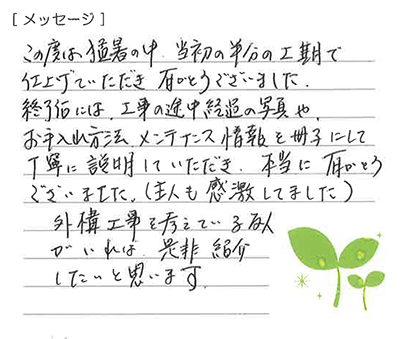 [ メッセージ ]
この度は猛暑の中、当初の半分の工期で
仕上げていただき 有がとうございました.
終了後には、工事の途中経過の写真や、
お手入れ方法、メンテナンス情報を冊子にして
丁寧に説明していただき、本当に有がとう
ございました。(主人も感激してました)
外構工事を考えている友人
がいれば、是非紹介
したいと思います.